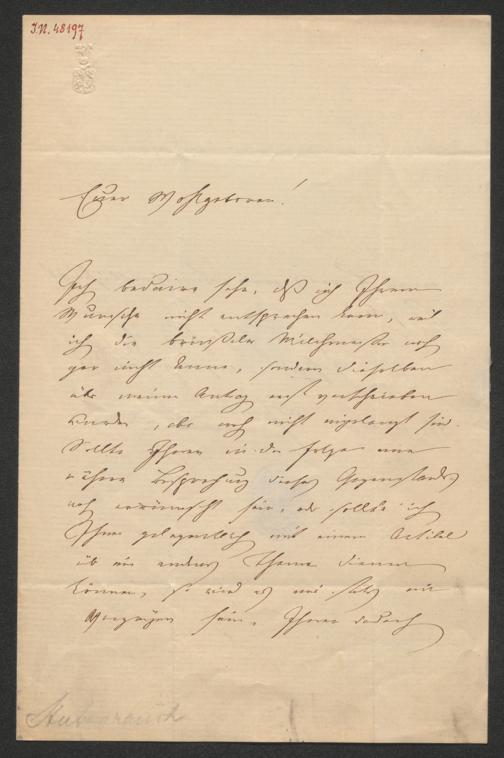 J.N. 48197
Euer Wohlgeboren!
Ich bedaure sehr, daß ich Ihrem
Wunsche nicht entsprechen kann, weil
ich die Brüsseler noch
gar nicht kenne, sondern dieselben
über meinen Antrag erst verschrieben
wurden, aber noch nicht eingelangt sind.
Sollte Ihnen in der Folge eine
nähere Besprechung dieses Gegenstandes
noch erwünscht sein, oder sollte ich
Ihnen gelegentlich mit einem Artikel
über ein anderes Thema dienen
können, so wird es mir stets ein
Vergnügen sein, Ihnen dadurch
Stubenrauch